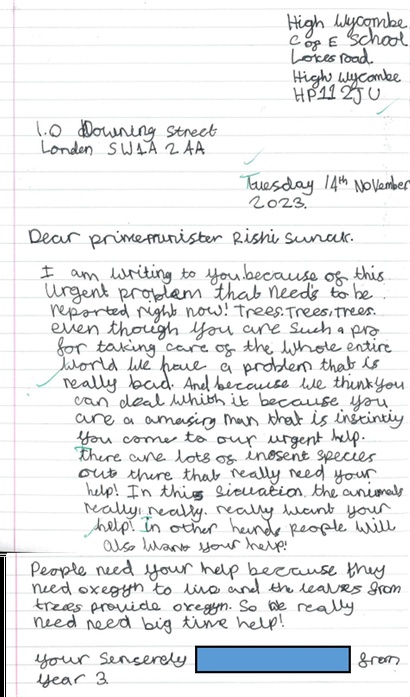 High Wycombe
C of E School
Lokes road.
High Wycombe
HP11 2JU
1.0 Downing Street
London SW1A 2AA
Tuesday 14th November
2023.
Dear primeminister Rishi Sunak.
I am writing to you because of this
Urgent problem that needs to be
reported right now! Trees, Trees, Trees.
even though you are such a pro
for taking care of the whole entire
world we have a problem that is
really bad. And because we think you
can deal whith it because you
are a amasing man that is instintly
you come to our urgent help.
There are lots of inosent species
out there that really need your
help! In this sicuation the animals
really, really, really want your
help! In other hends people will
also want your help!
People need your help because they
need oxegyn to live and the leaves from
trees provide oxegyn. So we really
need need big time help!
your Senserely from
year 3.